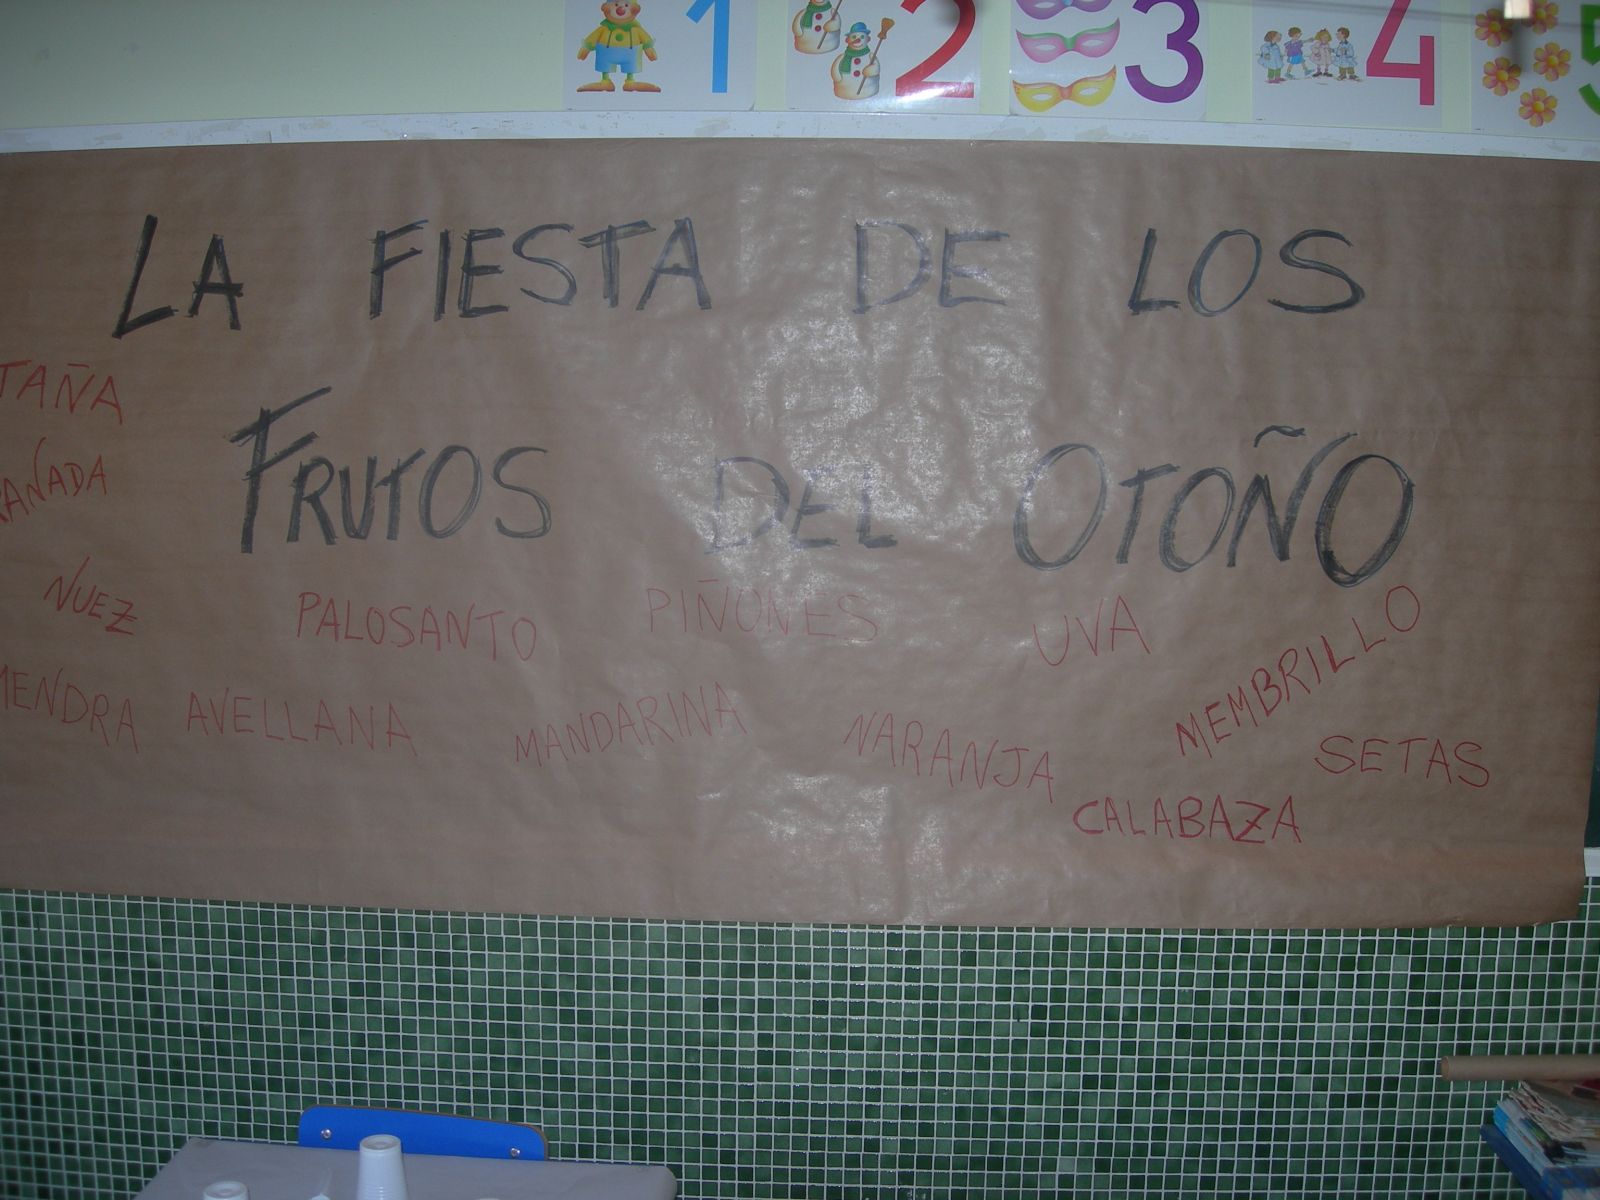 1 2 3 4 5
LA FIESTA DE LOS
FRUTOS DEL OTOÑO
TAÑA
RAÑADA
NUEZ PALOSANTO PIÑONES UVA MEMBRILLO
MENDRA AVELLANA MANDARINA NARANJA SETAS
CALABAZA